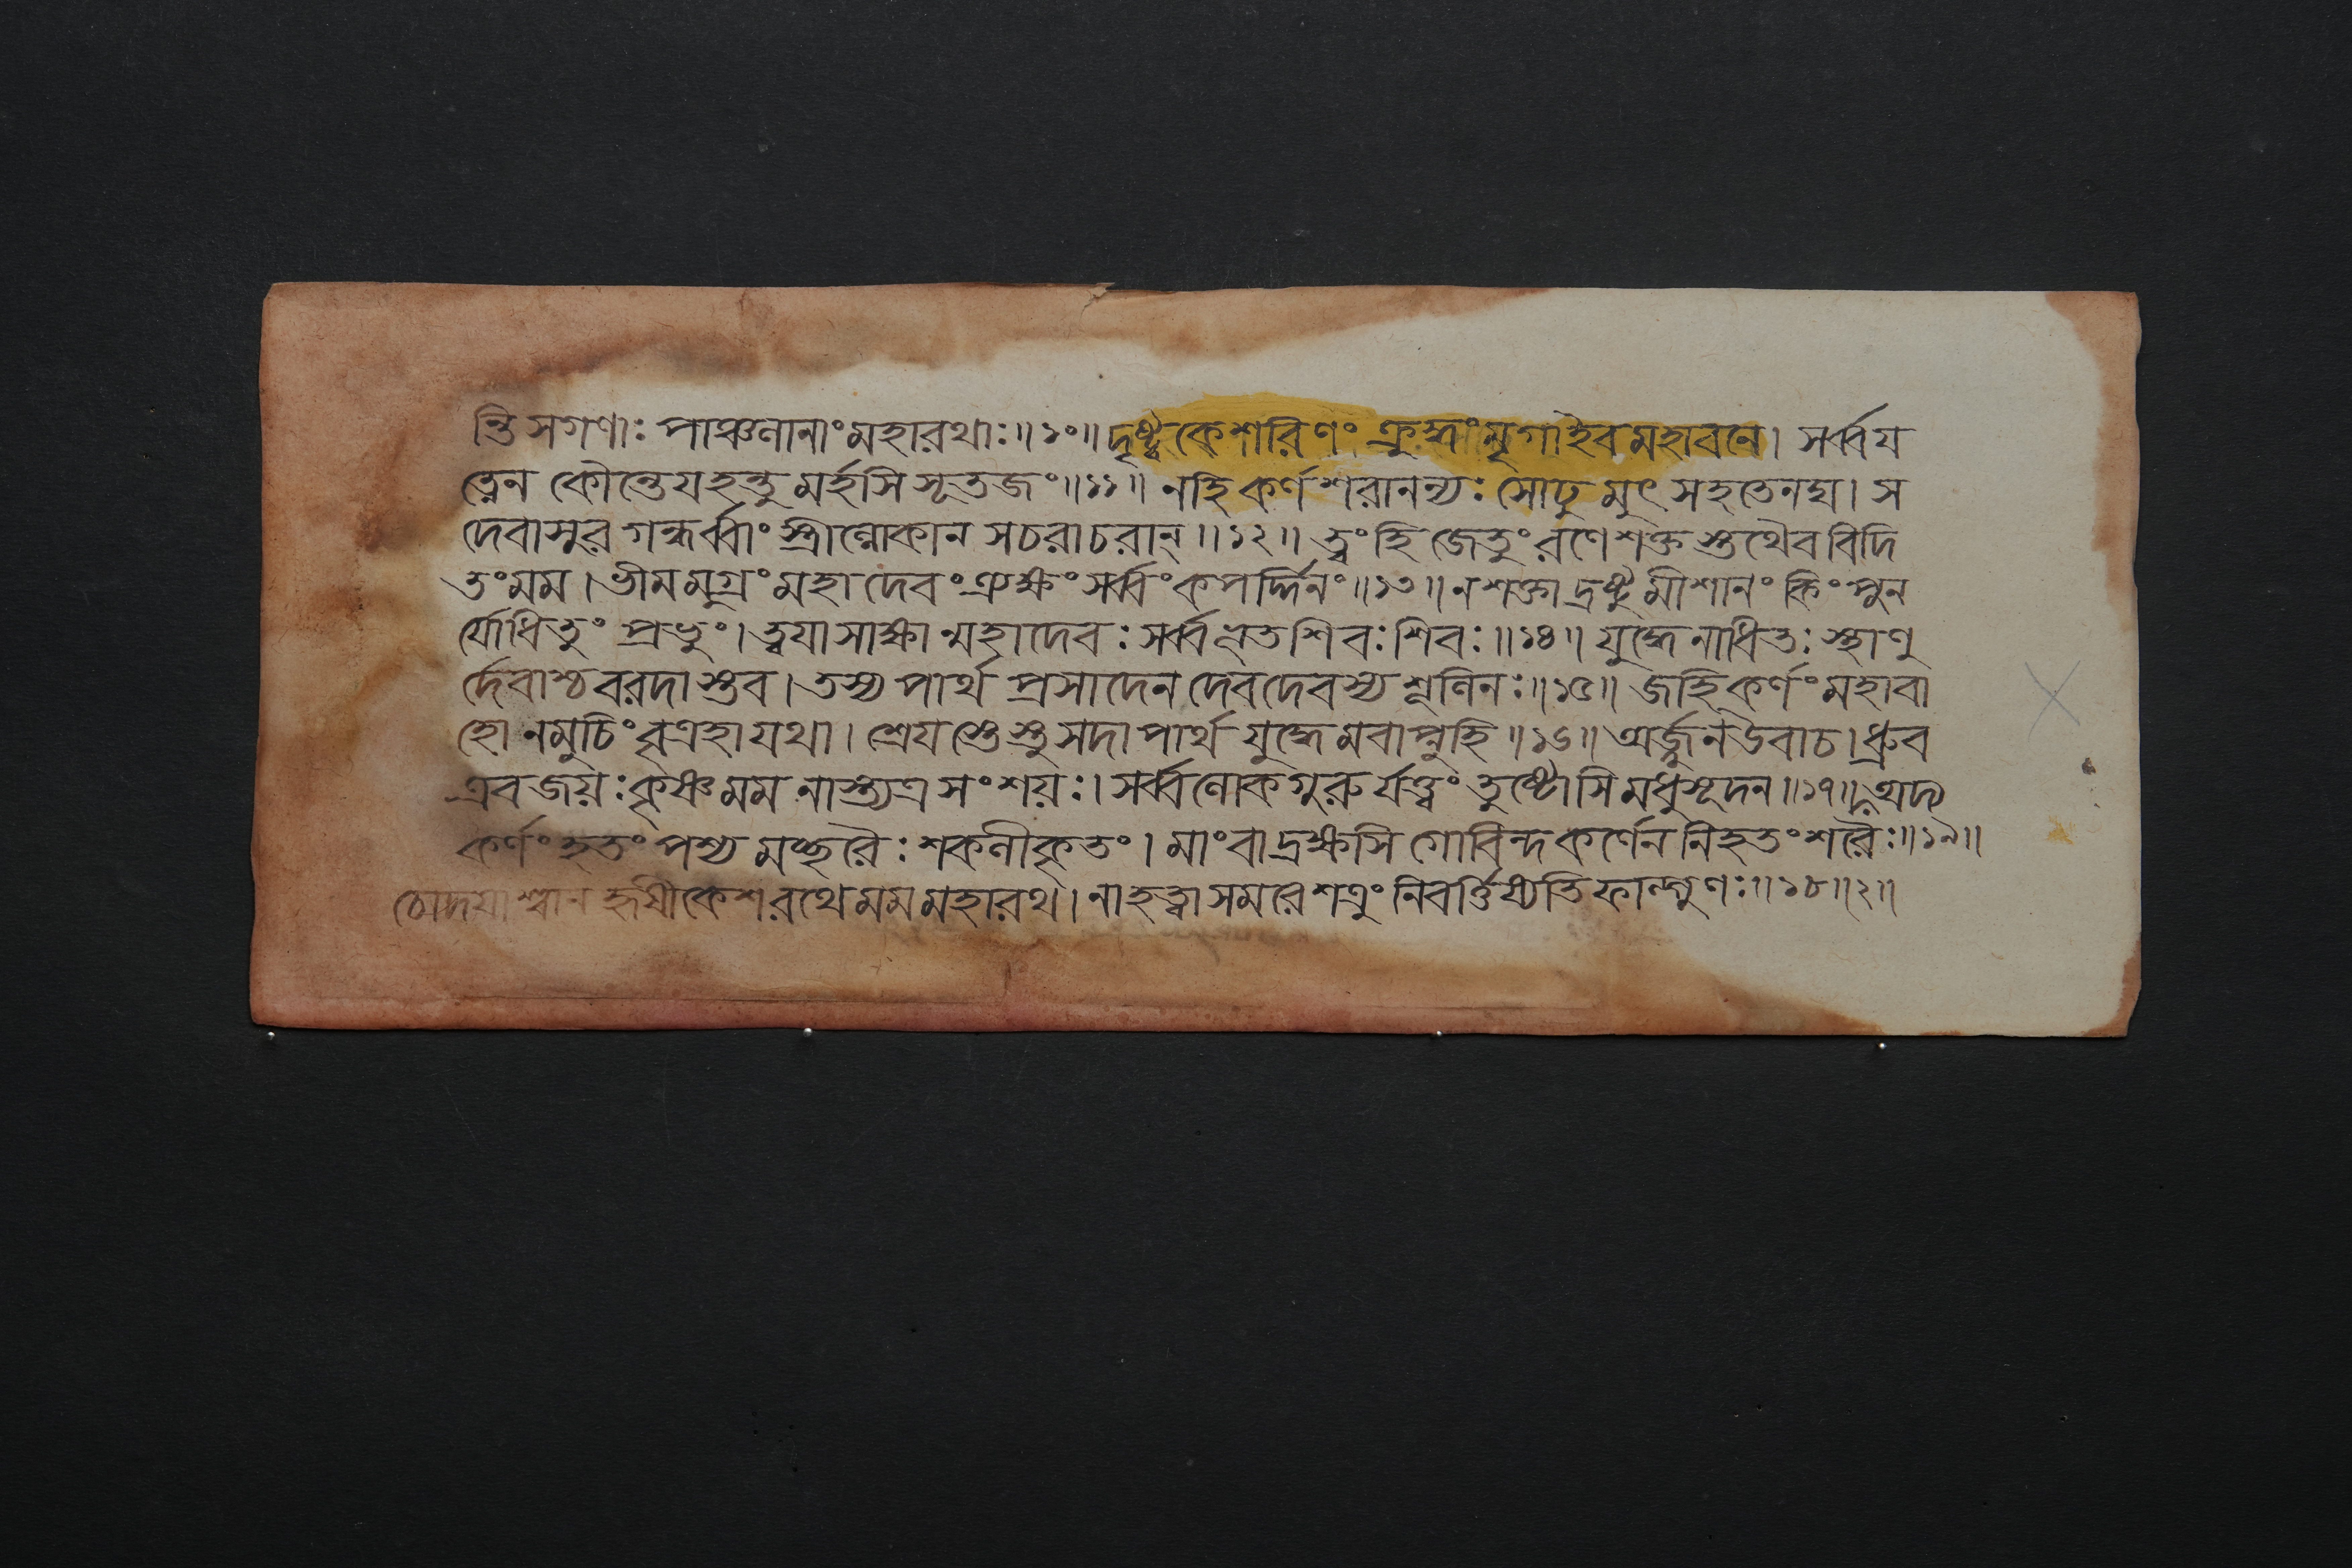 ন্তি সগণাঃ পাঞ্চালানাং মহারথাঃ॥১০॥ দৃষ্ট্বা কেশরিণং ক্রুদ্ধং মৃগা ইব মহাবনে। সর্ব্বয
ত্নেন কৌন্তেয হন্তুমর্হসি সূতজং॥১১॥ নহি কর্ণশরানন্যঃ সোঢুমুৎসহতে নদ্য। স
দেবাসুরগন্ধর্ব্বাং স্ত্রীল্লোকান সচরাচরান্॥১২॥ ত্বং হি জেতুং রণে শক্তস্তথৈব বিদি
তং মম। ভীমমুগ্রং মহাদেবং ত্র্যক্ষং সর্ব্বং কপর্দ্দিনং॥১৩॥ ন শক্তা দ্রষ্টুমীশানং কিং পুন
র্যোধিতুং প্রভুং। ত্বযা সাক্ষান্মহাদেবঃ সর্ব্বভূতশিবঃ শিবঃ॥১৪॥ যুদ্ধেনাধিতঃ স্থাণু
র্দেবাশ্চ বরদাস্তব। তস্য পার্থ প্রসাদেন দেবদেবস্য শূলিনঃ॥১৫॥ জহি কর্ণং মহাবা
হো নমুচিং বৃত্রহা যথা। শ্রেযস্তেস্তু সদা পার্থ যুদ্ধেমবাপ্নুহি॥১৬॥ অর্জ্জুন উবাচ। ধ্রুব
এব জয়ঃ কৃষ্ণ মম নাস্ত্যত্র সংশয়ঃ। সর্ব্বলোকগুরুর্যত্ত্বং তুষ্টোসি মধুসূদন॥১৭॥ অদ্য
কর্ণং হতং পশ্য মচ্ছরৈঃ শকলীকৃতং। মাং বা দ্রক্ষসি গোবিন্দ কর্ণেন নিহতং শরৈঃ॥১৯॥
চোদযাশ্বান হৃষীকেশ রথে মম মহারথ। নাহত্বা সমরে শত্রুং নিবর্ত্তিষ্যতি ফাল্গুণঃ॥১৮॥২॥